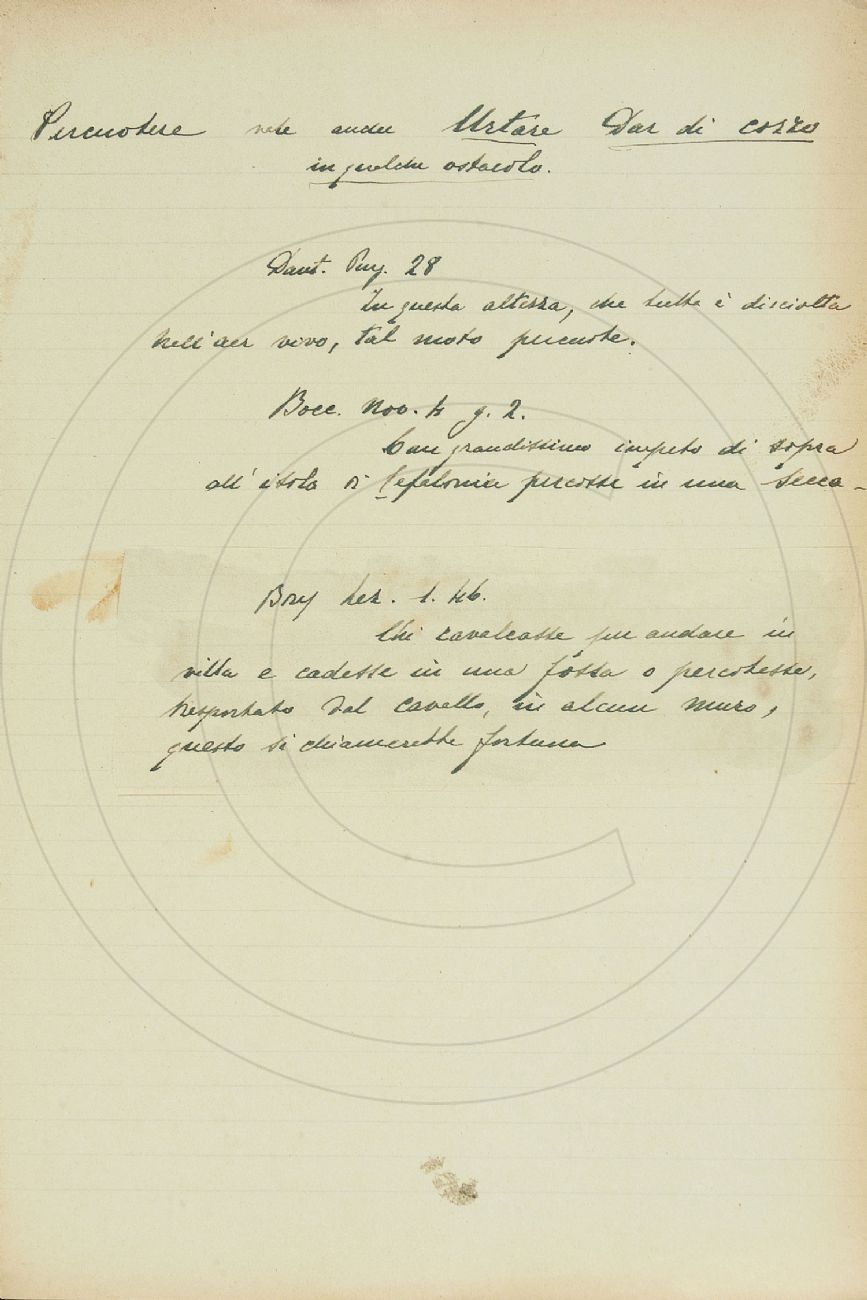 Percuotere vale anche Urtare Dar di cozzo
in qualche ostacolo.
Dant. Purg. 28
In questa altezza, che tutta è disciolta
nell'aer vivo, tal moto percuote.
Bocc. Nov. 4 g. 2.
Con grandissimo impeto di sopra
all'isola di Cefalonia percosse in una secca
Borg 1. 46.
Chi cavalcasse per andare in
villa e cadesse in una fossa o percotesse,
trasportato dal cavallo, in alcun muro,
questo si chiamerebbe fortuna